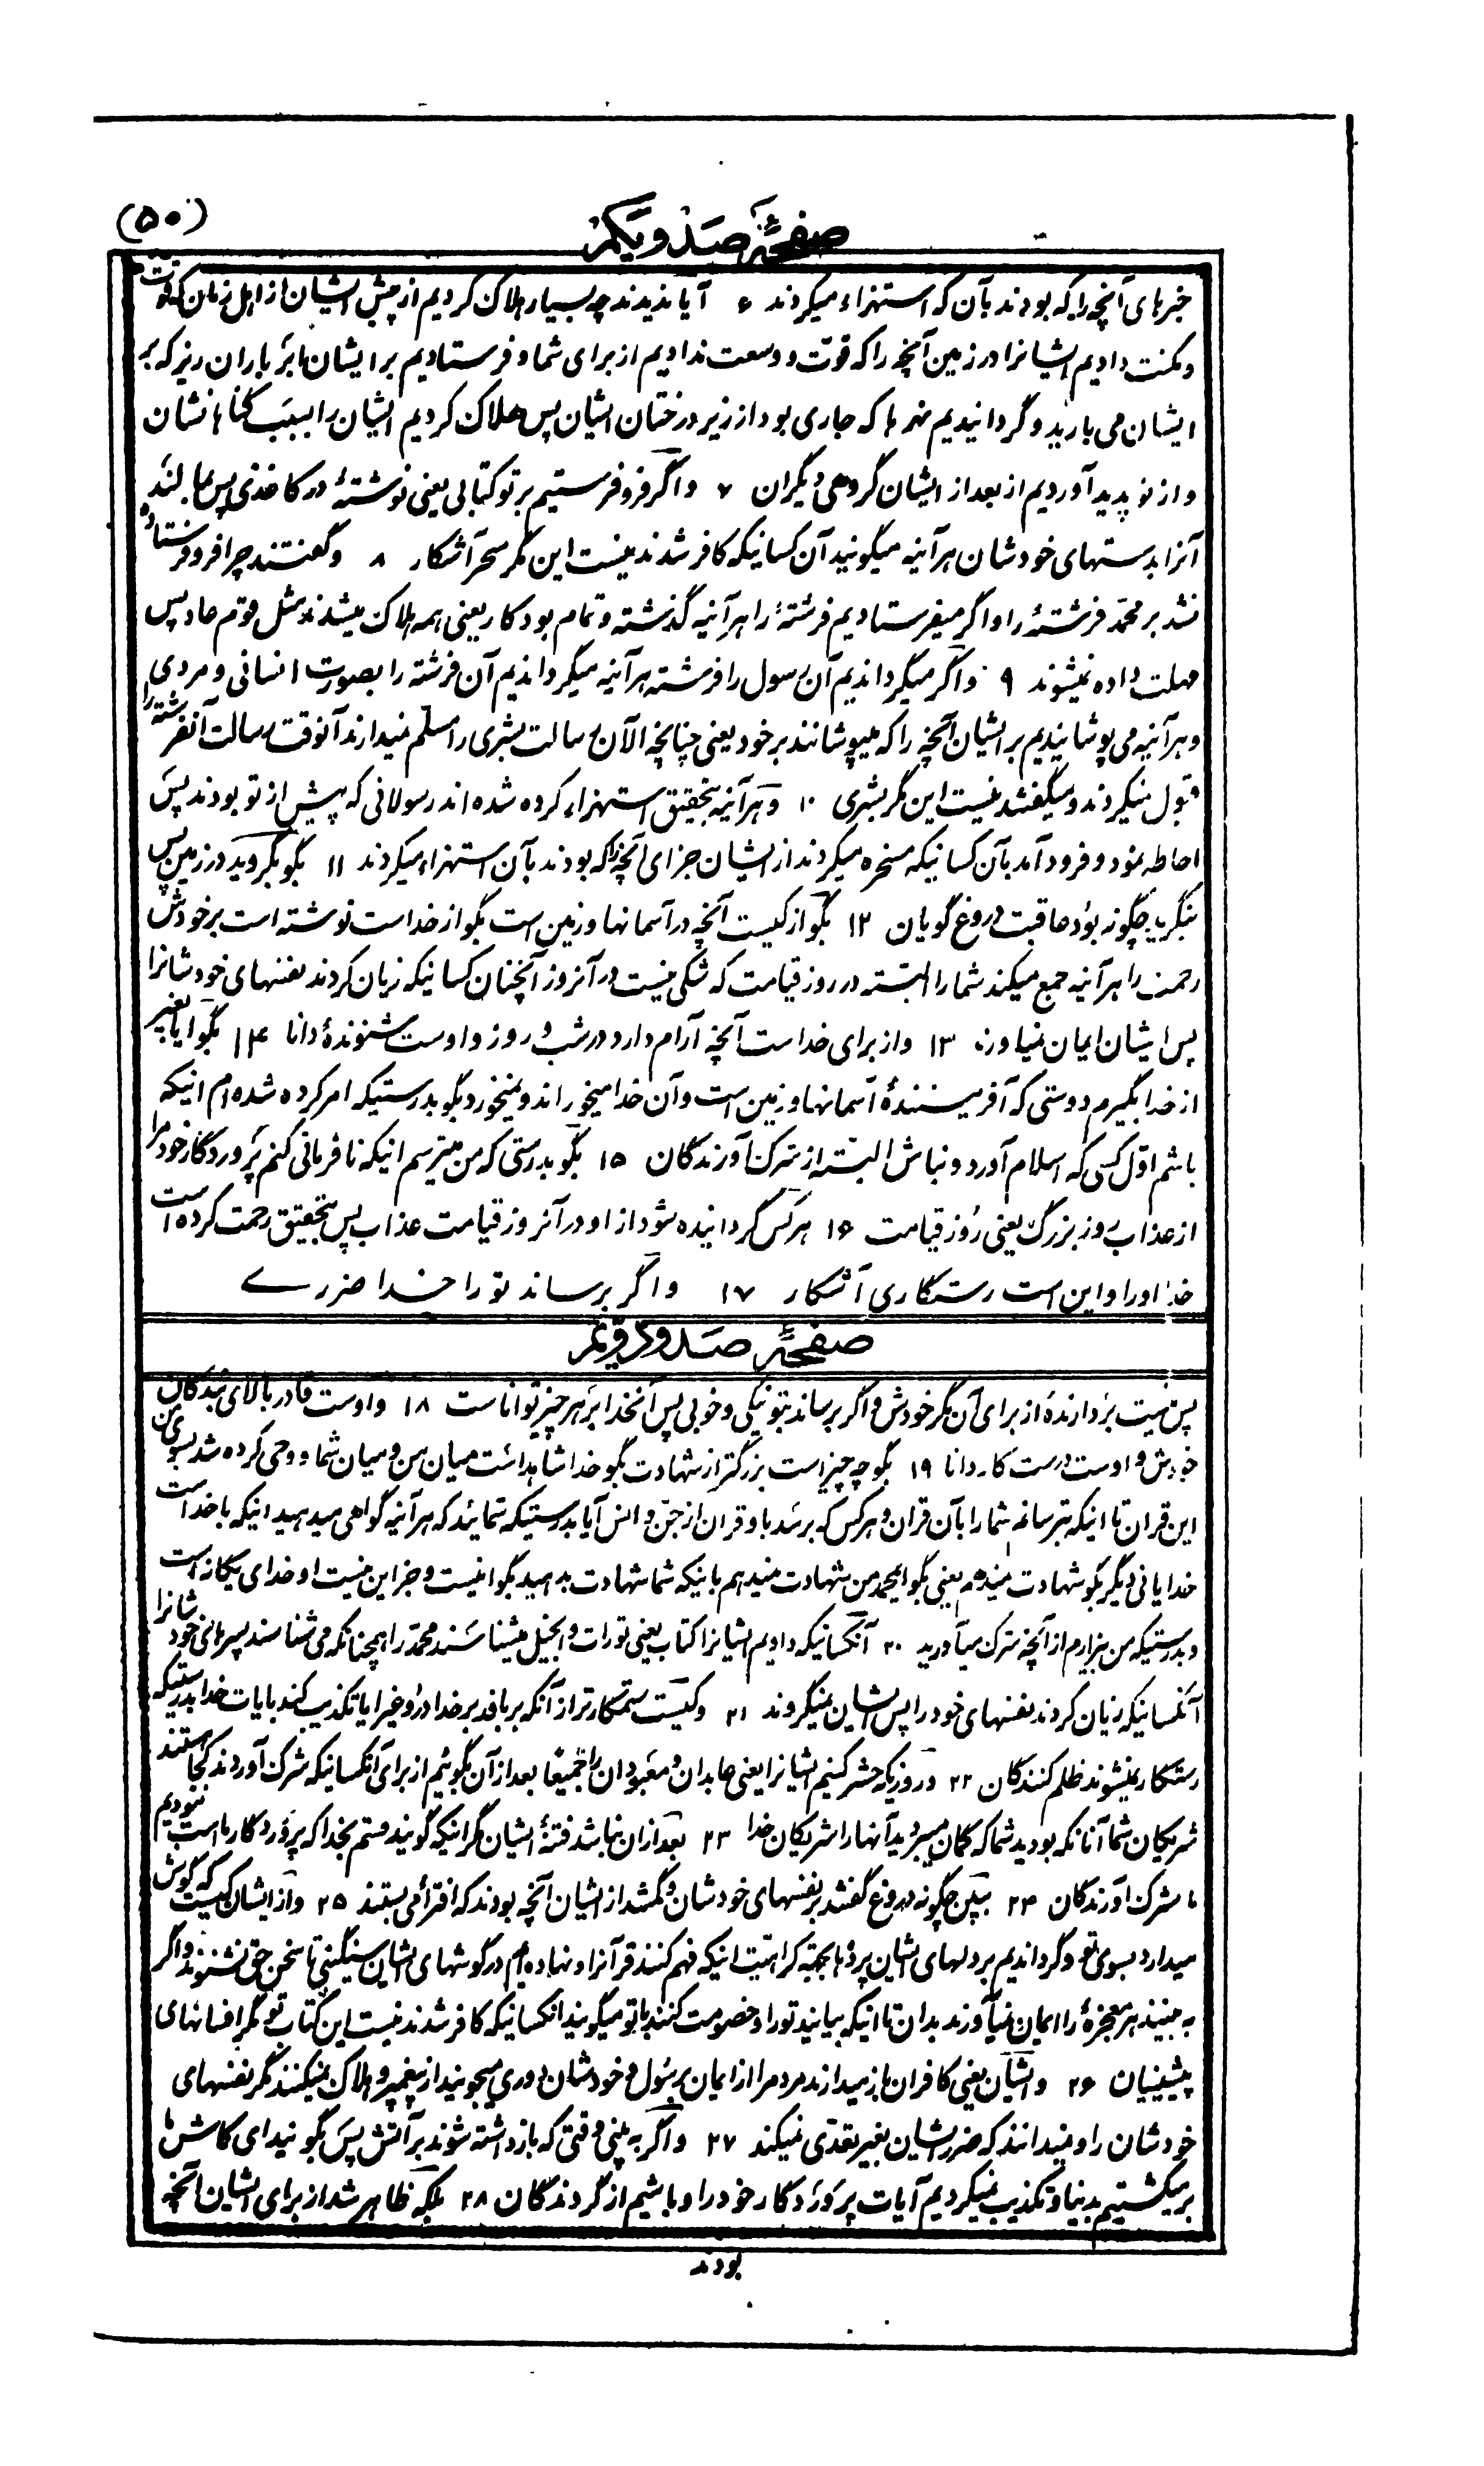 (۵۰)
صفحهٔ صد و یکم
خبرهای آنچه را که بودند بآن که استهزاء میکردند ۶ آیا ندیدند چه بسیار هلاک کردیم از پیش ایشان از اهل زمان که قوت
و مکنت دادیم ایشانرا در زمین آنچه را که قوّت و وسعت ندادیم از برای شما و فرستادیم بر ایشان ابر باران ریز که بر
ایشان می بارید و گردانیدیم نهرها که جاری بود از زیر درختان ایشان پس هلاک کردیم ایشان را بسبب گناهانشان
و از نو پدید آوردیم از بعد از ایشان گروهی دیگران ۷ و اگر فرو فرستیم بر تو کتابی یعنی نوشتهٔ در کاغذی پس بمالند
آنرا بدستهای خودشان هر آینه میگویند آن کسانیکه کافر شدند نیست این مگر سحر آشکار ۸ و گفتند چرا فرو فرستاده
نشد بر محمّد فرشتهٔ را و اگر میفرستادیم فرشتهٔ را هر آینه گذشته و تمام بود کار یعنی همه هلاک میشدند مثل قوم عاد پس
مهلت داده نمیشوند ۹ و اگر میگردانیدیم آن رسول را فرشته هر آینه میگردانیدیم آن فرشته را بصورت انسانی و مردی
و هر آینه می پوشانیدیم بر ایشان آنچه را که میپوشانند بر خود یعنی چنانچه الآن رسالت بشری را مسلّم نمیدارند آنوقت رسالت آنفرشته را
قبول نمیکردند و میگفتند نیست این مگر بشری ۱۰ و هر آینه بتحقیق استهزاء کرده شده اند رسولانی که پیش از تو بودند پس
احاطه نمود و فرود آمد بآن کسانیکه مسخره میکردند از ایشان جزای آنچه را که بودند بآن استهزاء میکردند ۱۱ بگو بگروید در زمین پس
بنگرید چگونه بود عاقبت دروغ گویان ۱۲ بگو از کیست آنچه در آسمانها و زمین است بگو از خداست نوشته است بر خودش
رحمت را هر آینه جمع میکند شما را البته در روز قیامت که شکی نیست در آنروز آنچنان کسانیکه زیان کردند نفسهای خودشانرا
پس ایشان ایمان نمیاورند ۱۳ و از برای خداست آنچه آرام دارد در شب و روز و اوست شنوندهٔ دانا ۱۴ بگو ایا بغیر
از خدا بگیرم دوستی که آفرینندهٔ آسمانها و زمین است و آن خدا میخوراند و نمیخورد بگو بدرستیکه امر کرده شده ام اینکه
باشم اوّل کسی که اسلام آورد و نباش البته از شرک آورندگان ۱۵ بگو بدرستی که من میترسم اینکه نافرمانی کنم پروردگار خود را
از عذاب روز بزرگ یعنی روز قیامت ۱۶ هر کس گردانیده شود از او در آنروز قیامت عذاب پس بتحقیق رحمت کرده است
خدا او را و این است رستگاری آشکار ۱۷ و اگر برساند تو را خدا ضررے
صفحهٔ صد و دویّم
پس نیست بردارندهٔ از برای آن مگر خودش و اگر برساند بتو نیکی و خوبی پس آنخدا بر هر چیز تواناست ۱۸ و اوست قادر بالای بندگان
خودش و اوست درست کار دانا ۱۹ بگو چه چیز است بزرگتر از شهادت بگو خدا شاهد است میان من و میان شما و وحی کرده شد بسوی من
این قران تا اینکه بترسانم شما را بآن قران و هر کس که برسد باو قران از جن و انس آیا بدرستیکه شمائید که هر آینه گواهی میدهید اینکه با خداست
خدایانی دیگر بگو شهادت نمیدهم یعنی بگو ایمحمد من شهادت نمیدهم باینکه شما شهادت بدهید بگو اینست و جز این نیست او خدای یگانه است
و بدرستیکه من بیزارم از آنچه شرک میآورید ۲۰ آنکسانیکه دادیم ایشانرا کتاب یعنی تورات و انجیل میشناسند محمّد را همچنانکه می شناسند پسرهای خودشانرا
آنکسانیکه زیان کردند نفسهای خود را پس ایشان نمیگروند ۲۱ و کیست ستمکارتر از آنکه بربافد بر خدا دروغی را یا تکذیب کند بایات خدا بدرستیکه
رستگار نمیشوند ظلم کنندگان ۲۲ و روزیکه حشر کنیم ایشانرا یعنی عابدان و معبودان را جمیعًا بعد از آن بگوئیم از برای آنکسانیکه شرک آوردند کجا استند
شریکان شما آنانکه بودید شما که گمان میبردید آنها را شریکان خدا ۲۳ بعد از ان نباشد فتنهٔ ایشان مگر اینکه گویند قسم بخدا که پروردگار ماست نبودیم
ما شرک آورندگان ۲۴ ببین چگونه دروغ گفتند بر نفسهای خودشان و گمشد از ایشان آنچه بودند که افترا می بستند ۲۵ و از ایشان کیست که گوش
میدارد بسوی تو و گردانیدیم بر دلهای ایشان پردها بجهة کراهتیت اینکه فهم کنند قرآنرا و نهاده ایم در گوشهای ایشان سنگینی تا سخن حق نشنوند و اگر
به بینند هر معجزهٔ را ایمان نمیآورند بدان تا اینکه بیایند تو را و خصومت کنند با تو میگویند انکسانیکه کافر شدند نیست این کتاب تو مگر افسانهای
پیشینیان ۲۶ و ایشان یعنی کافران باز میدارند مردم را از ایمان برسول و خودشان دوری میجویند از پیغمبر و هلاک نمیکنند مگر نفسهای
خودشان را و نمیدانند که ضرر ایشان بغیر تعدّی نمیکند ۲۷ و اگر به بینی وقتی که بازداشته شوند بر آتش پس بگویند ای کاش ما
برمیگشتیم بدنیا و تکذیب نمیکردیم آیات پروردگار خود را و باشیم از گروندگان ۲۸ بلکه ظاهر شد از برای ایشان آنچه
بودند